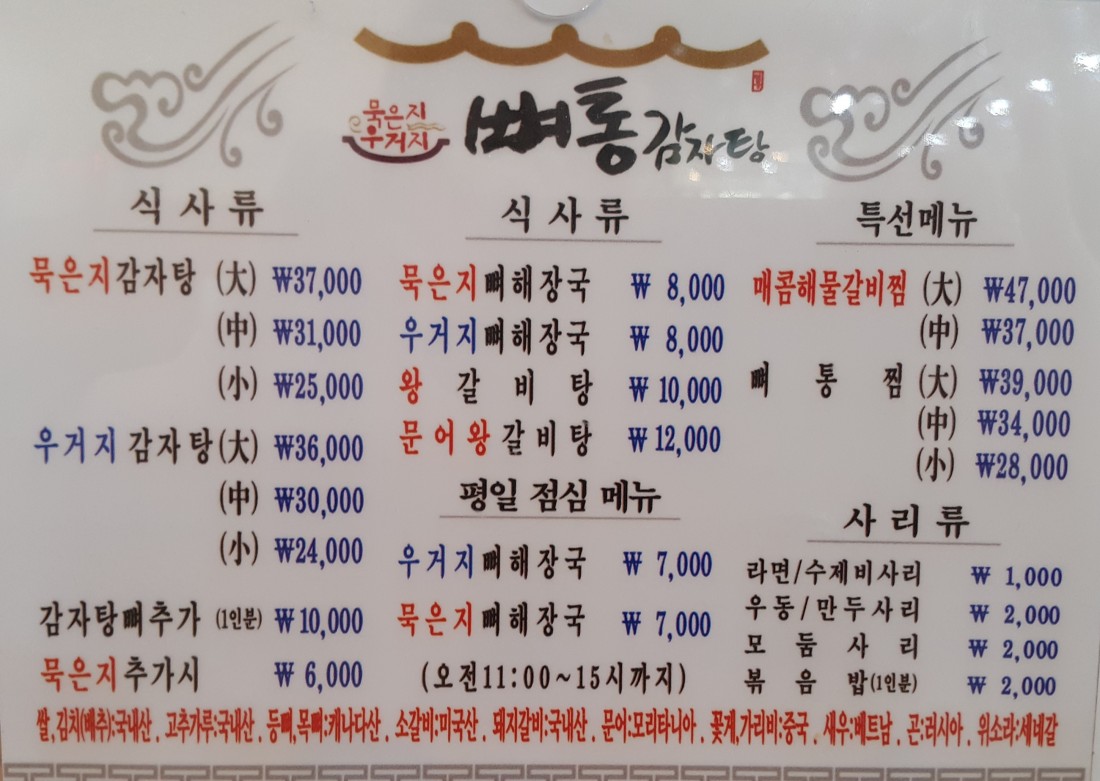 묵은지
우거지
뼈통감자탕
식사류
묵은지감자탕 (大) ₩37,000
(中) ₩31,000
(小) ₩25,000
우거지감자탕(大) ₩36,000
(中) ₩30,000
(小) ₩24,000
감자탕뼈추가 (1인분) ₩10,000
묵은지추가시 ₩ 6,000
식사류
묵은지뼈해장국 ₩ 8,000
우거지뼈해장국 ₩ 8,000
왕갈비탕 ₩ 10,000
문어왕갈비탕 ₩ 12,000
평일 점심 메뉴
우거지뼈해장국 ₩ 7,000
묵은지뼈해장국 ₩ 7,000
(오전11:00~15시까지)
특선메뉴
매콤해물갈비찜 (大) ₩47,000
(中) ₩37,000
뼈통찜 (大) ₩39,000
(中) ₩34,000
(小) ₩28,000
사리류
라면/수제비사리 ₩ 1,000
우동/만두사리 ₩ 2,000
모둠사리 ₩ 2,000
볶음밥(1인분) ₩ 2,000
쌀,김치(배추):국내산 . 고추가루:국내산 . 등뼈,목뼈:캐나다산 . 소갈비:미국산 . 돼지갈비:국내산 . 문어:모리타니아 . 꽃게,가리비:중국 . 새우:베트남 . 곤:러시아 . 위소라:세네갈